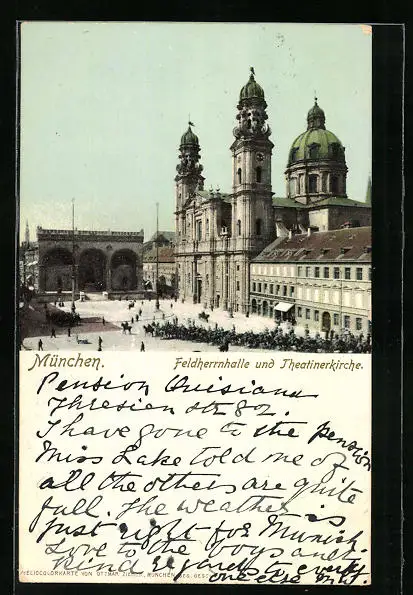 München.
Feldherrnhalle und Theatinerkirche.
Pension Quisiana
Thresien str 82.
I have gone to the pension
Miss Lake told me of
all the others are quite
full. The weather is
just right for Munich.
Love to the boys and
kind regards to every
one else
HELIOCOLORKARTE VON OTTMAR ZIEHER, MÜNCHEN. GES. GESCH.